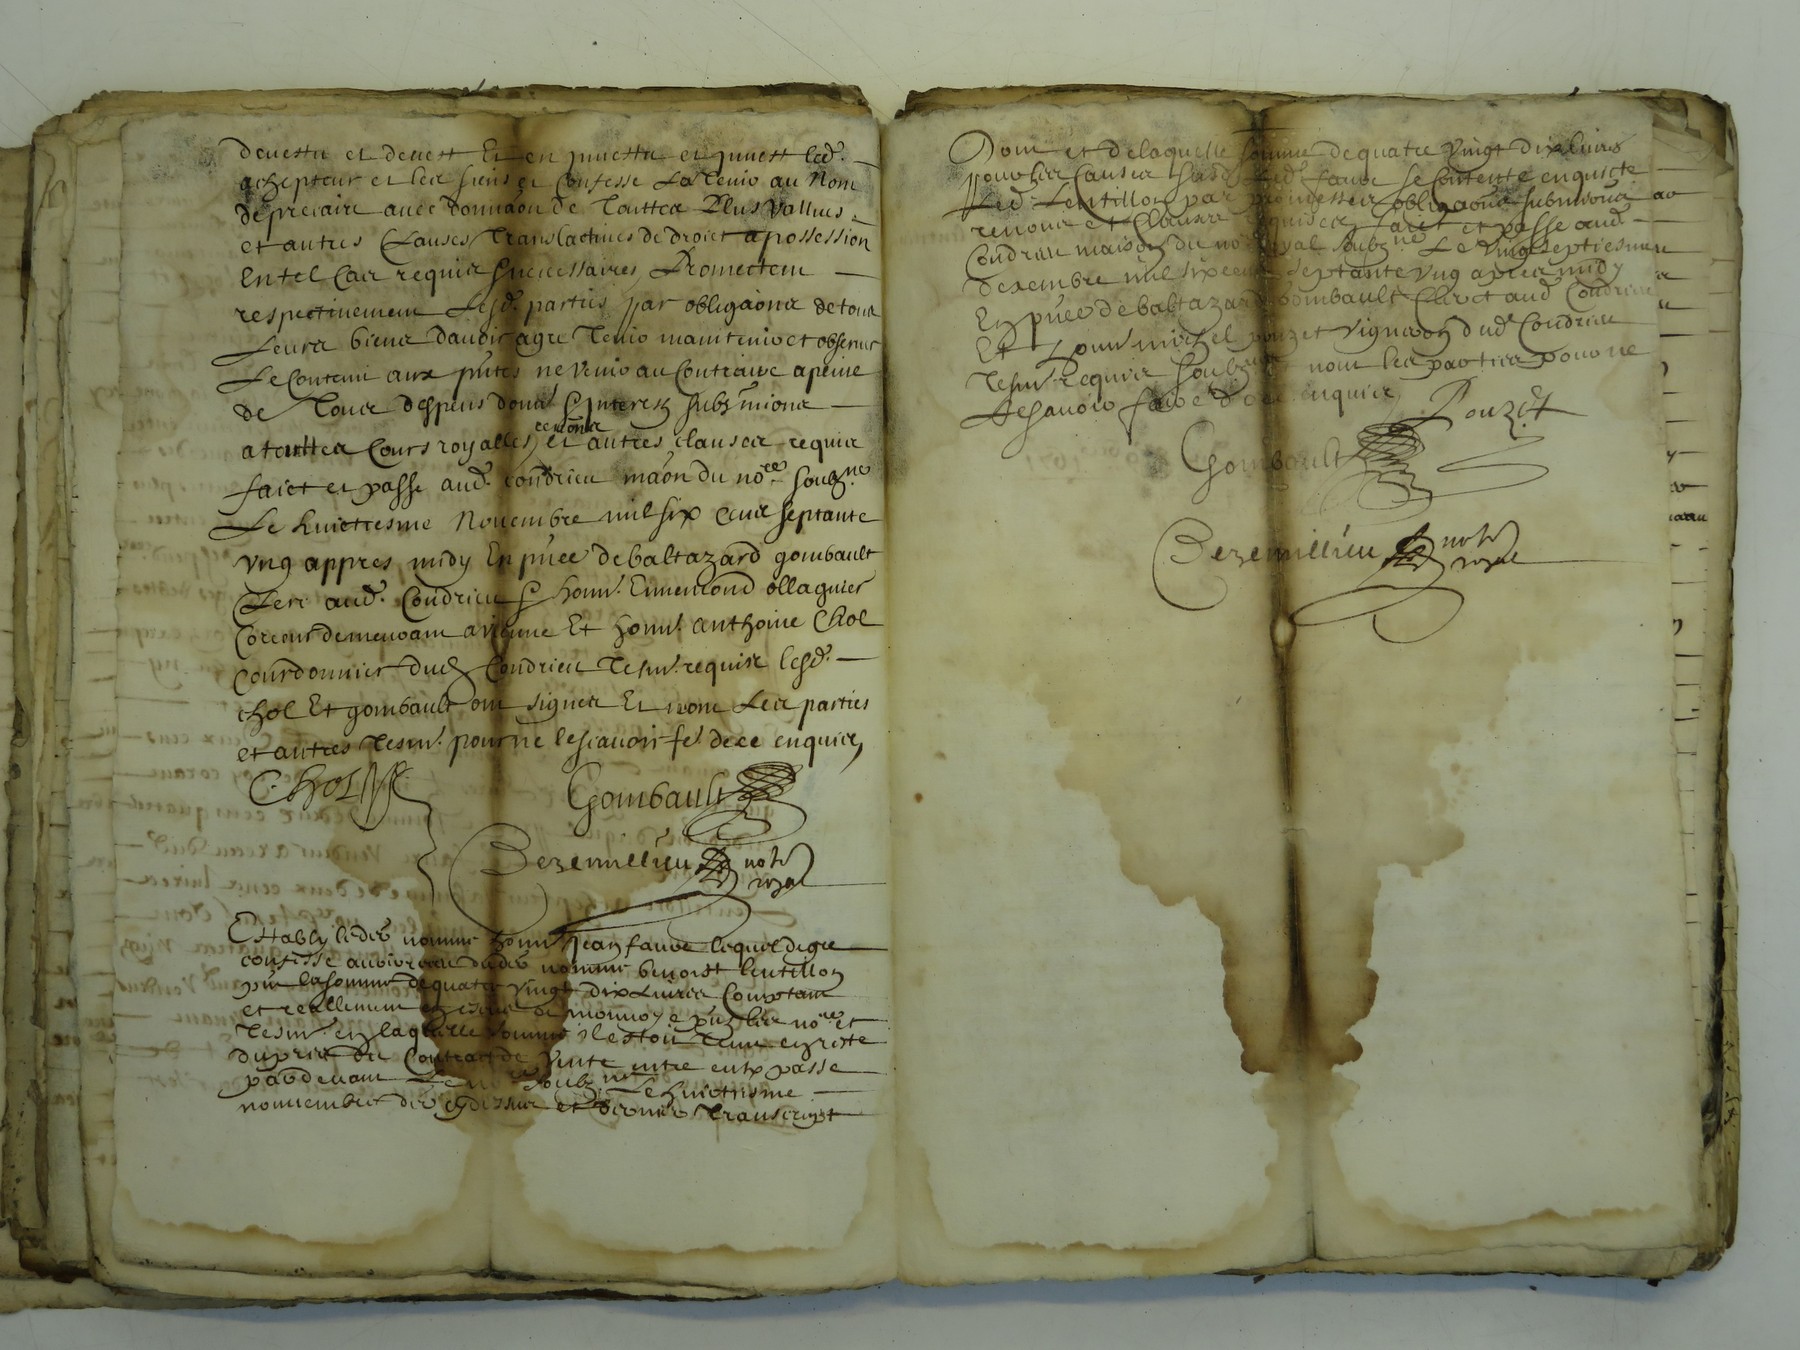 devestu et devest Et en investu et invest led.
achepteur et les siens et Confesse La tenir au Nom
de precaire avec donnaõn de Touttes Plus vallues
et autres Clauses Translactives de droict & possession
En tel Cas requis & necessaires Promectent
respectivement Lesd. parties par obligaõns de tous
Leurs biens davoir agre tenir maintenir et observer
Le Contenu aux pñtes ne venir au Contraire a peine
de Tous despens dom. & Interestz submions
a touttes Cours royalles renons et autres clauses requis
faict et passe aud. Condrieu maõn du no.re soubz.ne
Le huictiesme Novembre mil six Cens septante
ung appres midy En pñce de baltazard gombault
Clerc aud. Condrieu & honn. Ennemond ollagnier
demeurant a vienne Et honn. anthoine Chol
Courdonnier dud. Condrieu Tesm. requis lesd.
chol Et gombault ont signes Et non Les parties
et autres Tesm. pour ne le scavoir fe. de ce enquis
C. Chol
Gombault
Bezemillieu not.
royal
Estably led.
nomme honn. Jean faure lequel de gre
confesse avoir receu
nomme benoist lentillon
pñt la somme de quatre vingt dix Livres Comptant
et reellement en
monnoye
les no.re et
Tesm. en laquelle somme il estoit tenu en reste
du prix du Contract de Vente entre eux passe
pardevant Le no.re soubz.ne Le huictiesme
novembre
cy dessus et dernier Transcript
Dont et de laquelle somme de quatre vingt dix livres
pour les Causes susd. led. faure se Contente en quicte
Led. Lentillon par promesses obligaõns submions
renons et Clauses requises faict et passe aud.
Condrieu maison du no.re royal soubz.ne Le vingt septiesme
dexembre mil six cens septante ung apres midy
En pñce de baltazard gombault Clerc aud. Condrieu
Et honn. michel pouzet vigneron dud. Condrieu
Tesm. requis soubz.nes et non les parties pour ne
Le scavoir faire de ce enquis
Pouzet
Gombault
Bezemillieu not.
royal